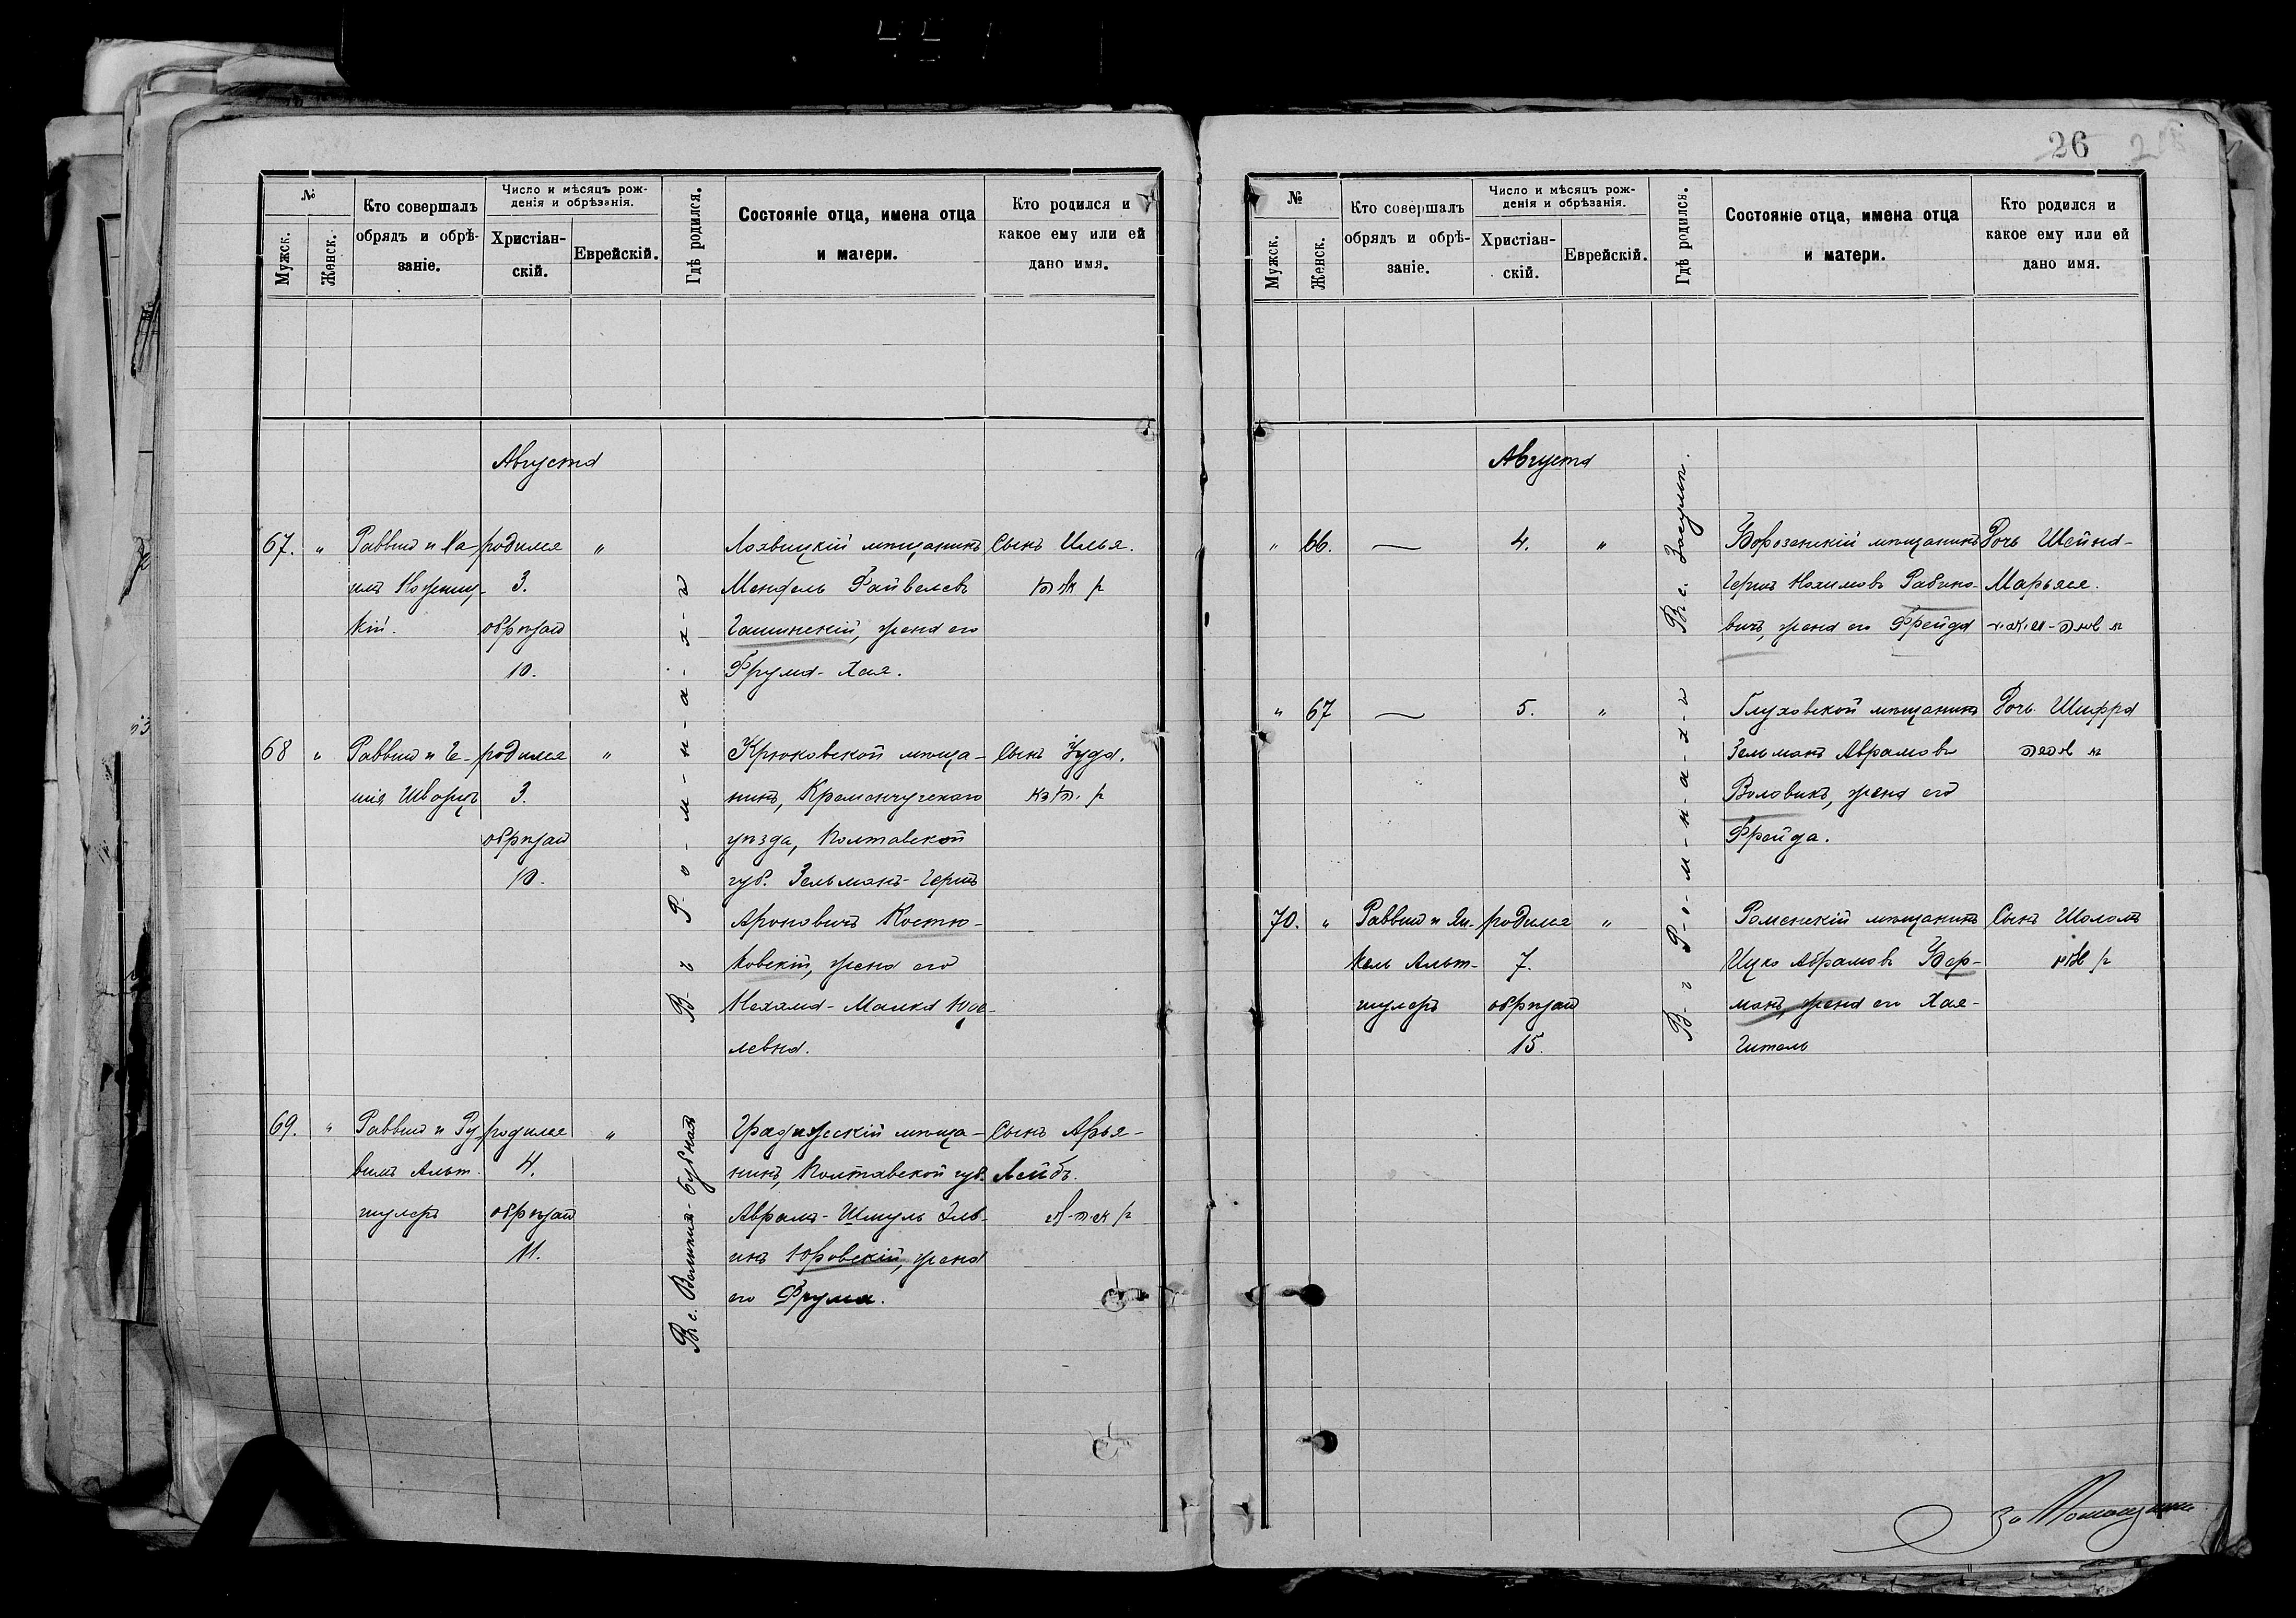 №
Мужск.
Женск.
Кто совершалъ
обрядъ и обрѣ-
заніе.
Число и мѣсяцъ рож-
денія и обрѣзанія.
Христіан-
скій.
Еврейскій.
Гдѣ родился.
Состояніе отца, имена отца
и матери.
Кто родился и
какое ему или ей
дано имя.
Августа
67. „
Раввинъ и
кій.
родился
3.
обрѣзан
10.
„
Лохвицкій мѣщанинъ
Мендель Файвелевъ
жена его
Фрума-Хая.
Сынъ Илья.
68 „
Раввинъ и Ге-
шія Шворцъ
родился
3.
обрѣзан
10.
„
В-ъ Р-о-м-н-а-х-ъ
Крюковской мѣща-
нинъ, Кременчугскаго
уѣзда, Полтавской
губ. Зельманъ-Герцъ
Ароновичъ Костю-
ковскій, жена его
Нехама-Малка Іосе-
левна.
Сынъ Іуда.
69. „
Раввинъ и Ру-
вимъ Альт-
шулеръ
родился
4.
обрѣзан
11.
„
Въ с. Великия-Бубная
Градижскій мѣща-
нинъ, Полтавской губ.
Аврамъ-Шмуль Эль-
инъ Юровскій, жена
его Фрума.
Сынъ Арья-
Лейбъ.
26
№
Мужск.
Женск.
Кто совершалъ
обрядъ и обрѣ-
заніе.
Число и мѣсяцъ рож-
денія и обрѣзанія.
Христіан-
скій.
Еврейскій.
Гдѣ родился.
Состояніе отца, имена отца
и матери.
Кто родился и
какое ему или ей
дано имя.
Августа
„ 66.
—
4.
„
Въ с. Засулье.
Борозенскій мѣщанинъ
Герцъ Нохимовъ Рабино-
вичъ, жена его Фрейда
Дочь Шейна-
Марьяся.
„ 67
—
5.
„
Глуховской мѣщанинъ
Зельманъ Аврамовъ
Воловикъ, жена его
Фрейда.
Дочь Шифра
70. „
Раввинъ и Ян-
кель Альт-
шулеръ
родился
7.
обрѣзан
15.
„
В-ъ Р-о-м-н-а-х-ъ
Роменскій мѣщанинъ
Ицко Абрамовъ Бер-
манъ, жена его Хая-
Гитель
Сынъ Шоломъ
За